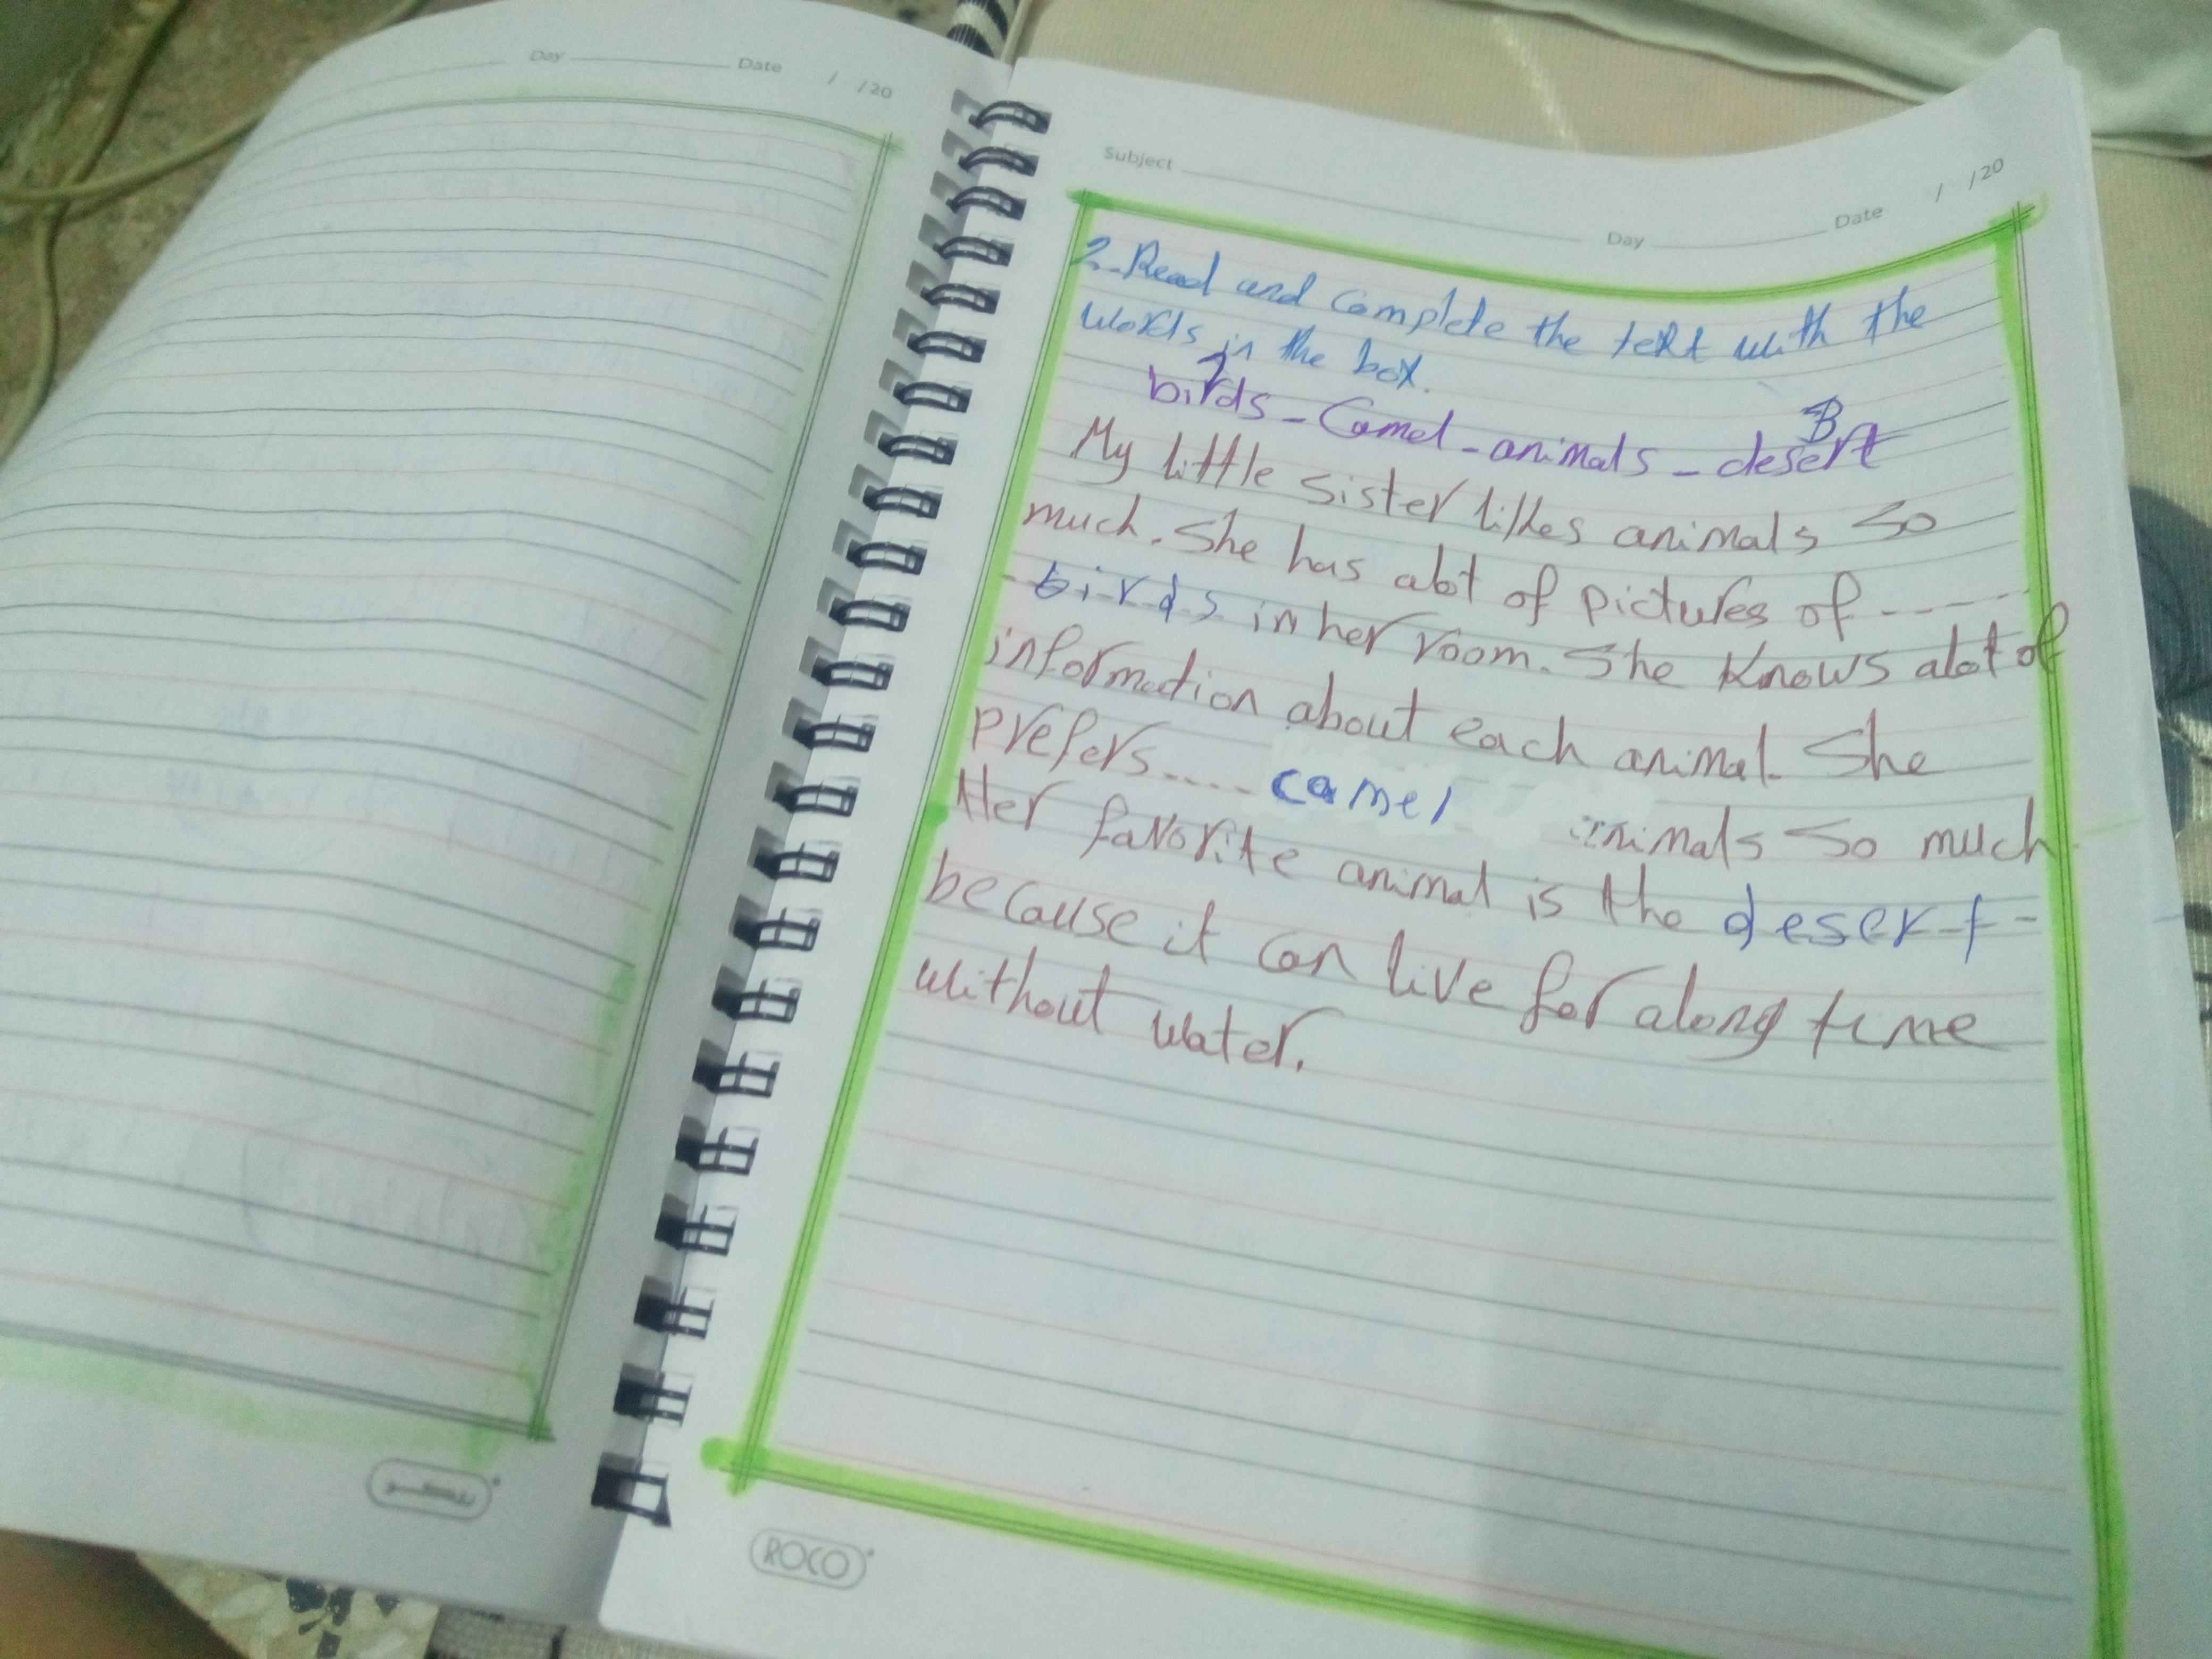 Day Date / /20
Subject Day Date / /20
2-Read and complete the text with the
words in the box.
birds - Camel - animals - desert
My little sister likes animals so
much. She has alot of pictures of ------
- birds in her room. She Knows alot of
information about each animal. She
prefers.... camel animals so much
Her favorite animal is the desert -
because it can live for along time
without water.
ROCO